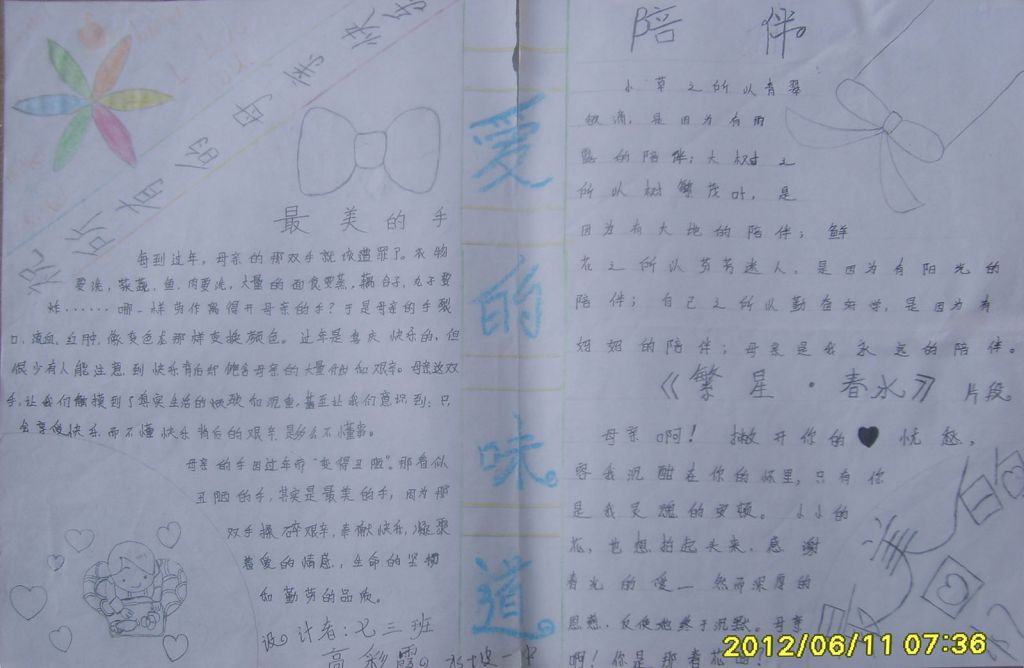 祝所有的母亲快乐
最美的手
每到过年，母亲的那双手就该遭罪了。衣物
要洗，蔬菜、鱼、肉要洗，大量的面食要蒸，藕合子，丸子要
炸……哪一样劳作离得开母亲的手？于是母亲的手裂
口，流血，红肿，像变色龙那样变换颜色。过年是喜庆快乐的，但
很少有人能注意到快乐背后却饱含母亲的大量付出和艰辛。母亲这双
手，让我们触摸到了真实生活的和沉重，甚至让我们意识到：只
会享受快乐而不懂快乐背后的艰辛是多么不懂事。
母亲的手因过年而“变得丑陋”。那看似
丑陋的手，其实是最美的手，因为那
双手操碎艰辛，奉献快乐，凝聚
着爱的情感，生命的坚韧
和勤劳的品质。
设计者：七三班
高彩霞。
爱的味道
陪伴
小草之所以青翠
欲滴，是因为有雨
露的陪伴；大树之
所以树繁茂叶，是
因为有大地的陪伴；鲜
花之所以芬芳迷人，是因为有阳光的
陪伴；自己之所以勤奋好学，是因为有
妈妈的陪伴；母亲是我永远的陪伴。
《繁星·春水》片段。
母亲啊！撇开你的忧愁，
容我沉酣在你的怀里，只有你
是我灵魂的安顿。小小的
花，也想抬起头来，感谢
春光的爱—然而深厚的
恩慈，反使她终于沉默。母亲
啊！你是那春光吗！
美
的
2012/06/11 07:36